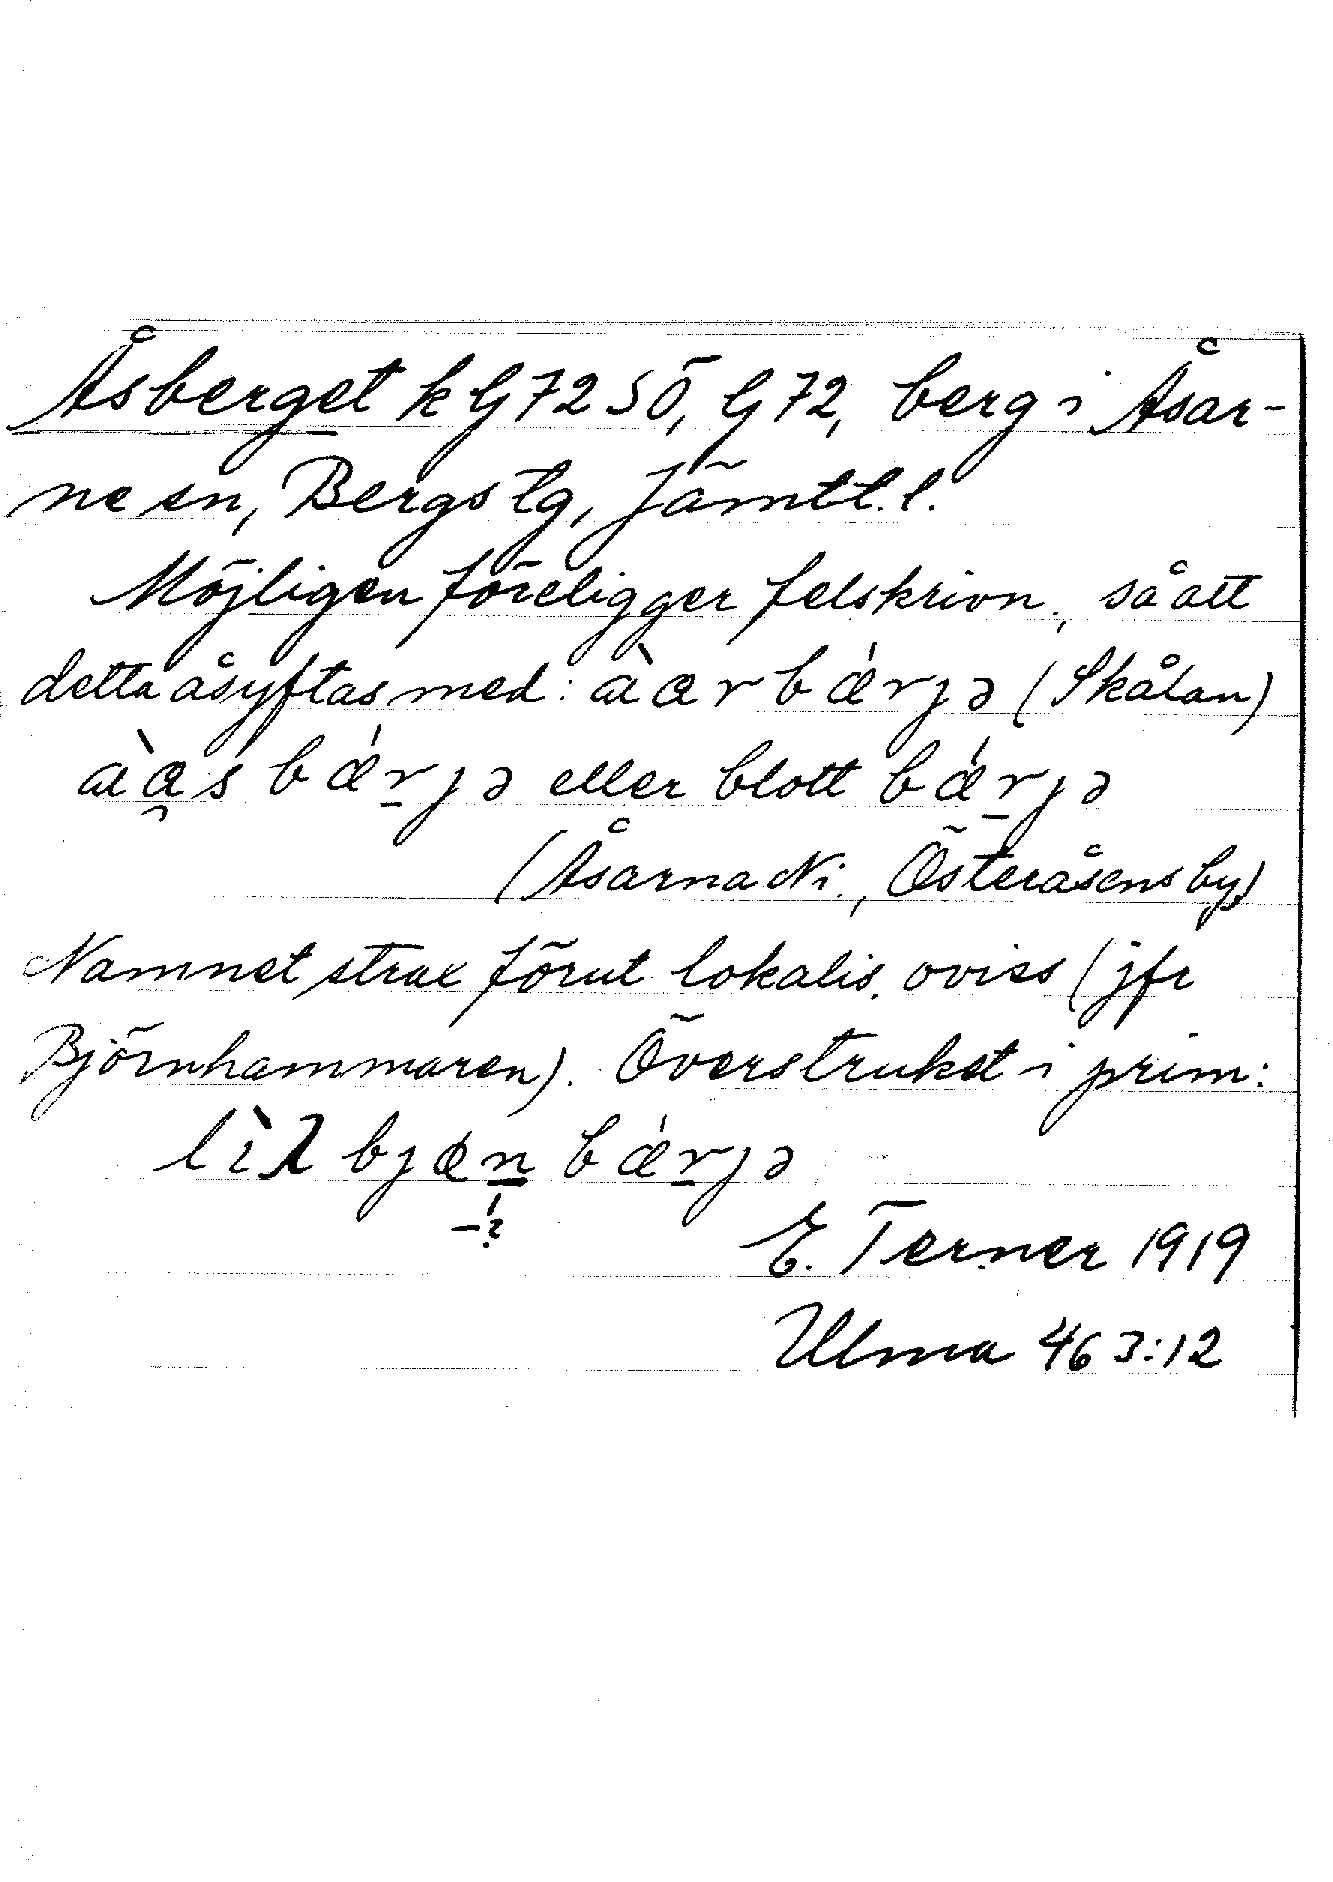 Åsberget k G72 SÖ, G 72, berg i Åsar-
ne sn, Bergs tg, Jämtl. l.
Möjligen föreligger felskrivn., så att
detta åsyftas med: àarbǽrjə (Skålan)
àas bǽrjə eller blott bǽrjə
(Åsarna Ni., Österåsens by)
Namnet strax förut lokalis. oviss (jfr
Björnhammaren). Överstruket i prim:
lìλ bjœn bǽrjə
– ?
E. Terner 1919
Ulma 463:12